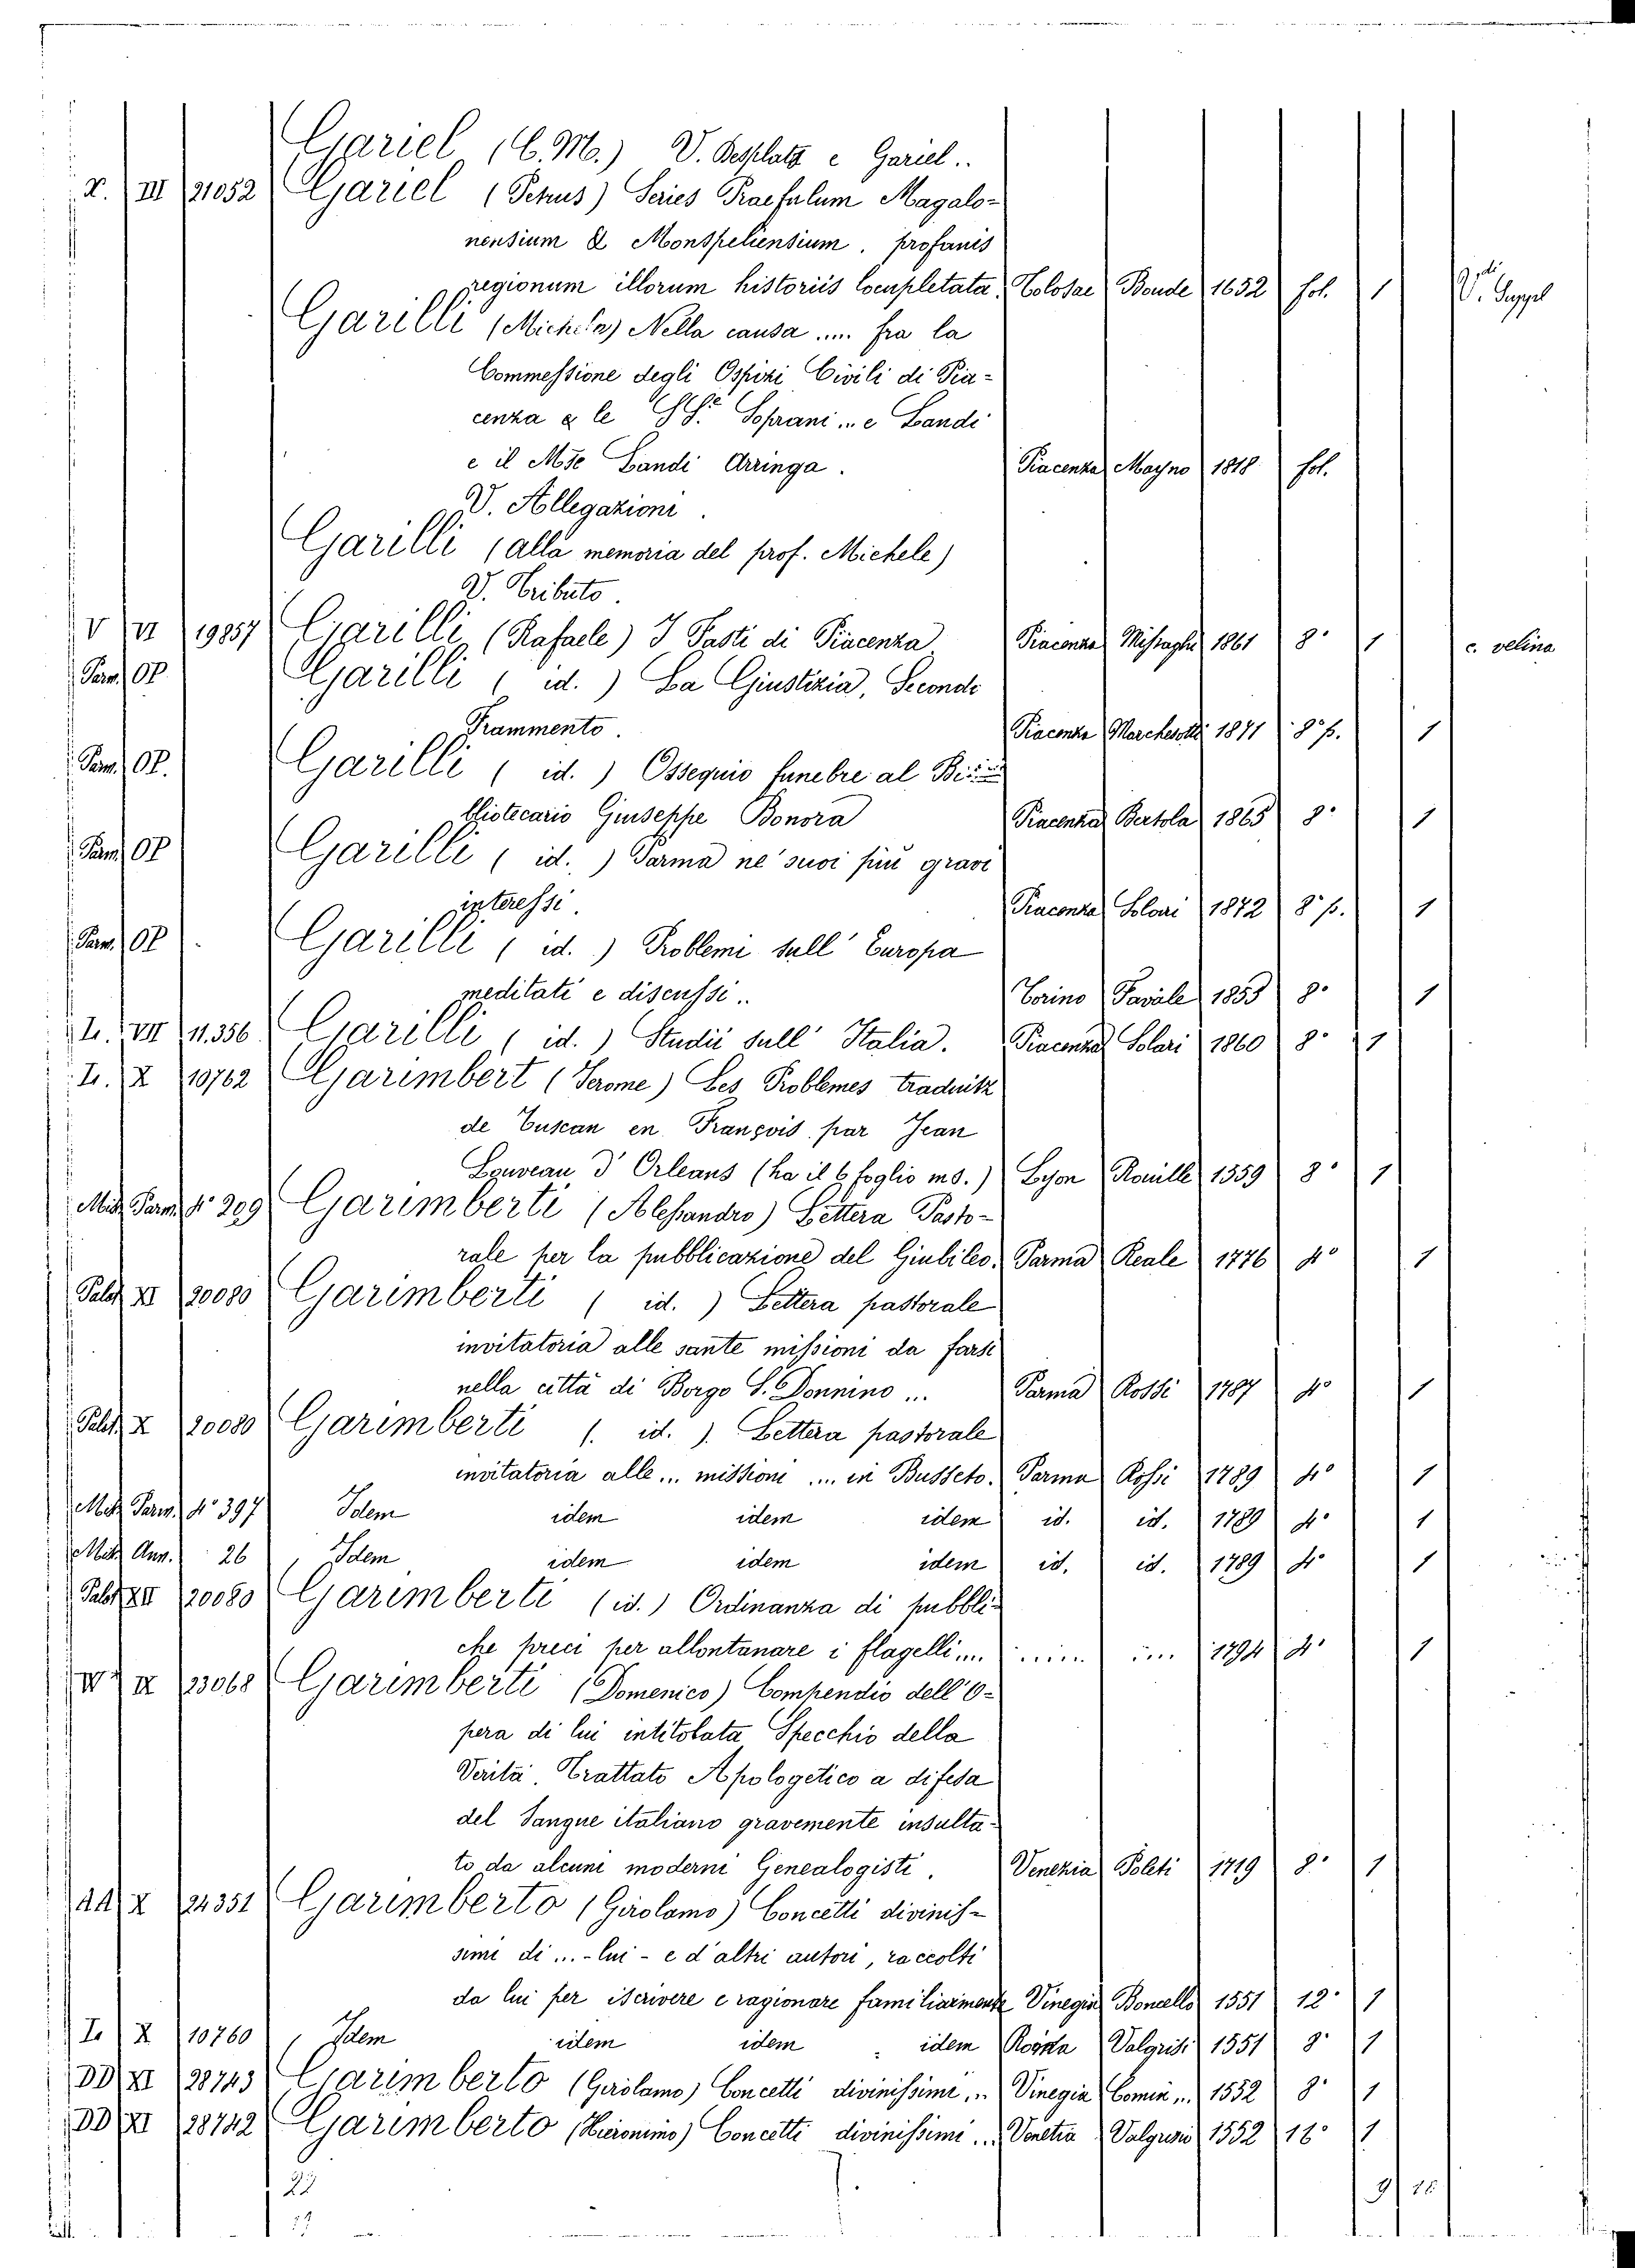 Gariel (C. M.) V. Besplatz e Gariel..
X. III 21052 Gariel (Petrus) Series Praesulum Magalo-
nensium & Monspeliensium, profanis
regionum illorum historiis locupletata. Tolosae Boude 1652 fol. 1 V. Suppl
Garilli (Michele) Nella causa .... fra la
Commessione degli Ospizi Civili di Pia-
cenza e le SS.re Soprani ... e Landi
e il Mse Landi Arringa. Piacenza Mayno 1818 fol.
V. Allegazioni.
Garilli (alla memoria del prof. Michele)
V. Tributo.
V VI 19857 Garilli (Rafaele) I Fasti di Piacenza Piacenza 1861 8° 1 c. velina
Parm. OP Garilli (id.) La Giustizia, Secondo
Frammento. Piacenza Marchesotti 1871 8° p. 1
Parm. OP. Garilli (id.) Ossequio funebre al Bi-
bliotecario Giuseppe Bonora Piacenza Bertola 1865 8° 1
Parm OP Garilli (id.) Parma ne' suoi più gravi
interessi. Piacenza Solari 1872 8° p. 1
Parm. OP Garilli (id.) Problemi sull' Europa
meditati e discussi.. Torino Favale 1853 8° 1
L. VII 11.356 Garilli (id.) Studii sull' Italia. Piacenza Solari 1860 8° 1
L. X 10762 Garimbert (Jerome) Les Problemes traduitz
de Tuscan en François par Jean
Louveau d' Orleans (ha il 6 foglio ms.) Lyon Rouille 1559 8° 1
Misc. Parm. 4° 209 Garimberti (Alessandro) Lettera Pasto-
rale per la pubblicazione del Giubileo. Parma Reale 1776 4° 1
Palat XI 20080 Garimberti (id.) Lettera pastorale
invitatoria alle sante missioni da farsi
nella città di Borgo S. Donnino ... Parma Rossi 1787 4° 1
Palat. X 20080 Garimberti (id.) Lettera pastorale
invitatoria alle ... missioni .... in Busseto. Parma Rossi 1789 4° 1
Misc. Parm. 4° 397 Idem idem idem idem id. id. 1789 4° 1
Misc. Ann. 26 Idem idem idem idem id. id. 1789 4° 1
Palat XII 20080 Garimberti (id.) Ordinanza di pubbli-
che preci per allontanare i flagelli .... ...... .... 1794 4° 1
IX 23068 Garimberti (Domenico) Compendio dell' O-
pera di lui intitolata Specchio della
Verità. Trattato Apologetico a difesa
del Sangue italiano gravemente insulta-
to da alcuni moderni Genealogisti. Venezia Poleti 1719 8° 1
AA X 24351 Garimberto (Girolamo) Concetti divinis-
simi di ... - lui - e d'altri autori, raccolti
da lui per iscrivere e ragionare familiarmente Vinegia Boncello 1551 12° 1
L. X 10760 Idem idem idem idem Roma Valgrisi 1551 8° 1
DD XI 28743 Garimberto (Gerolamo) Concetti divinissimi ... Vinegia Comin ... 1552 8° 1
DD XI 28742 Garimberto (Hieronimo) Concetti divinissimi ... Venetia Valgrisi 1552 1